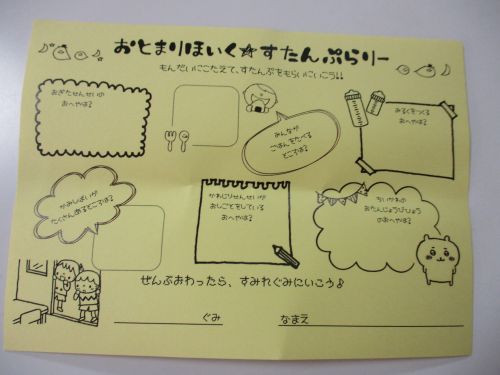 おとまりほいく☆すたんぷらりー
もんだいにこたえて、すたんぷをもらいにいこう!!
おぎたせんせいの
おへやは?
みんなが
ごはんをたべる
ところは?
みるくをつくる
おへやは?
かみしばいが
たくさんあるところは?
かわじりせんせいが
おしごとをしている
おへやは?
ちいかわの
おたんじょうびひょう
のおへやは?
ぜんぶおわったら、すみれぐみにいこう♪
ぐみ
なまえ